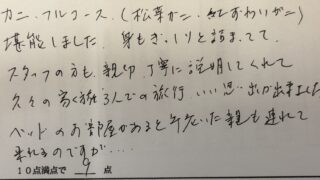 カニ、フルコース、(松葉ガニ、紅ずわいガニ)
堪能しました。身もぎっしりと詰まってて
スタッフの方も、親切、丁寧に説明してくれて
久々の家族3人での旅行、いい思い出が出来ました
ベッドのお部屋があると年老いた親も連れて
来れるのですが....
10点満点で 9 点